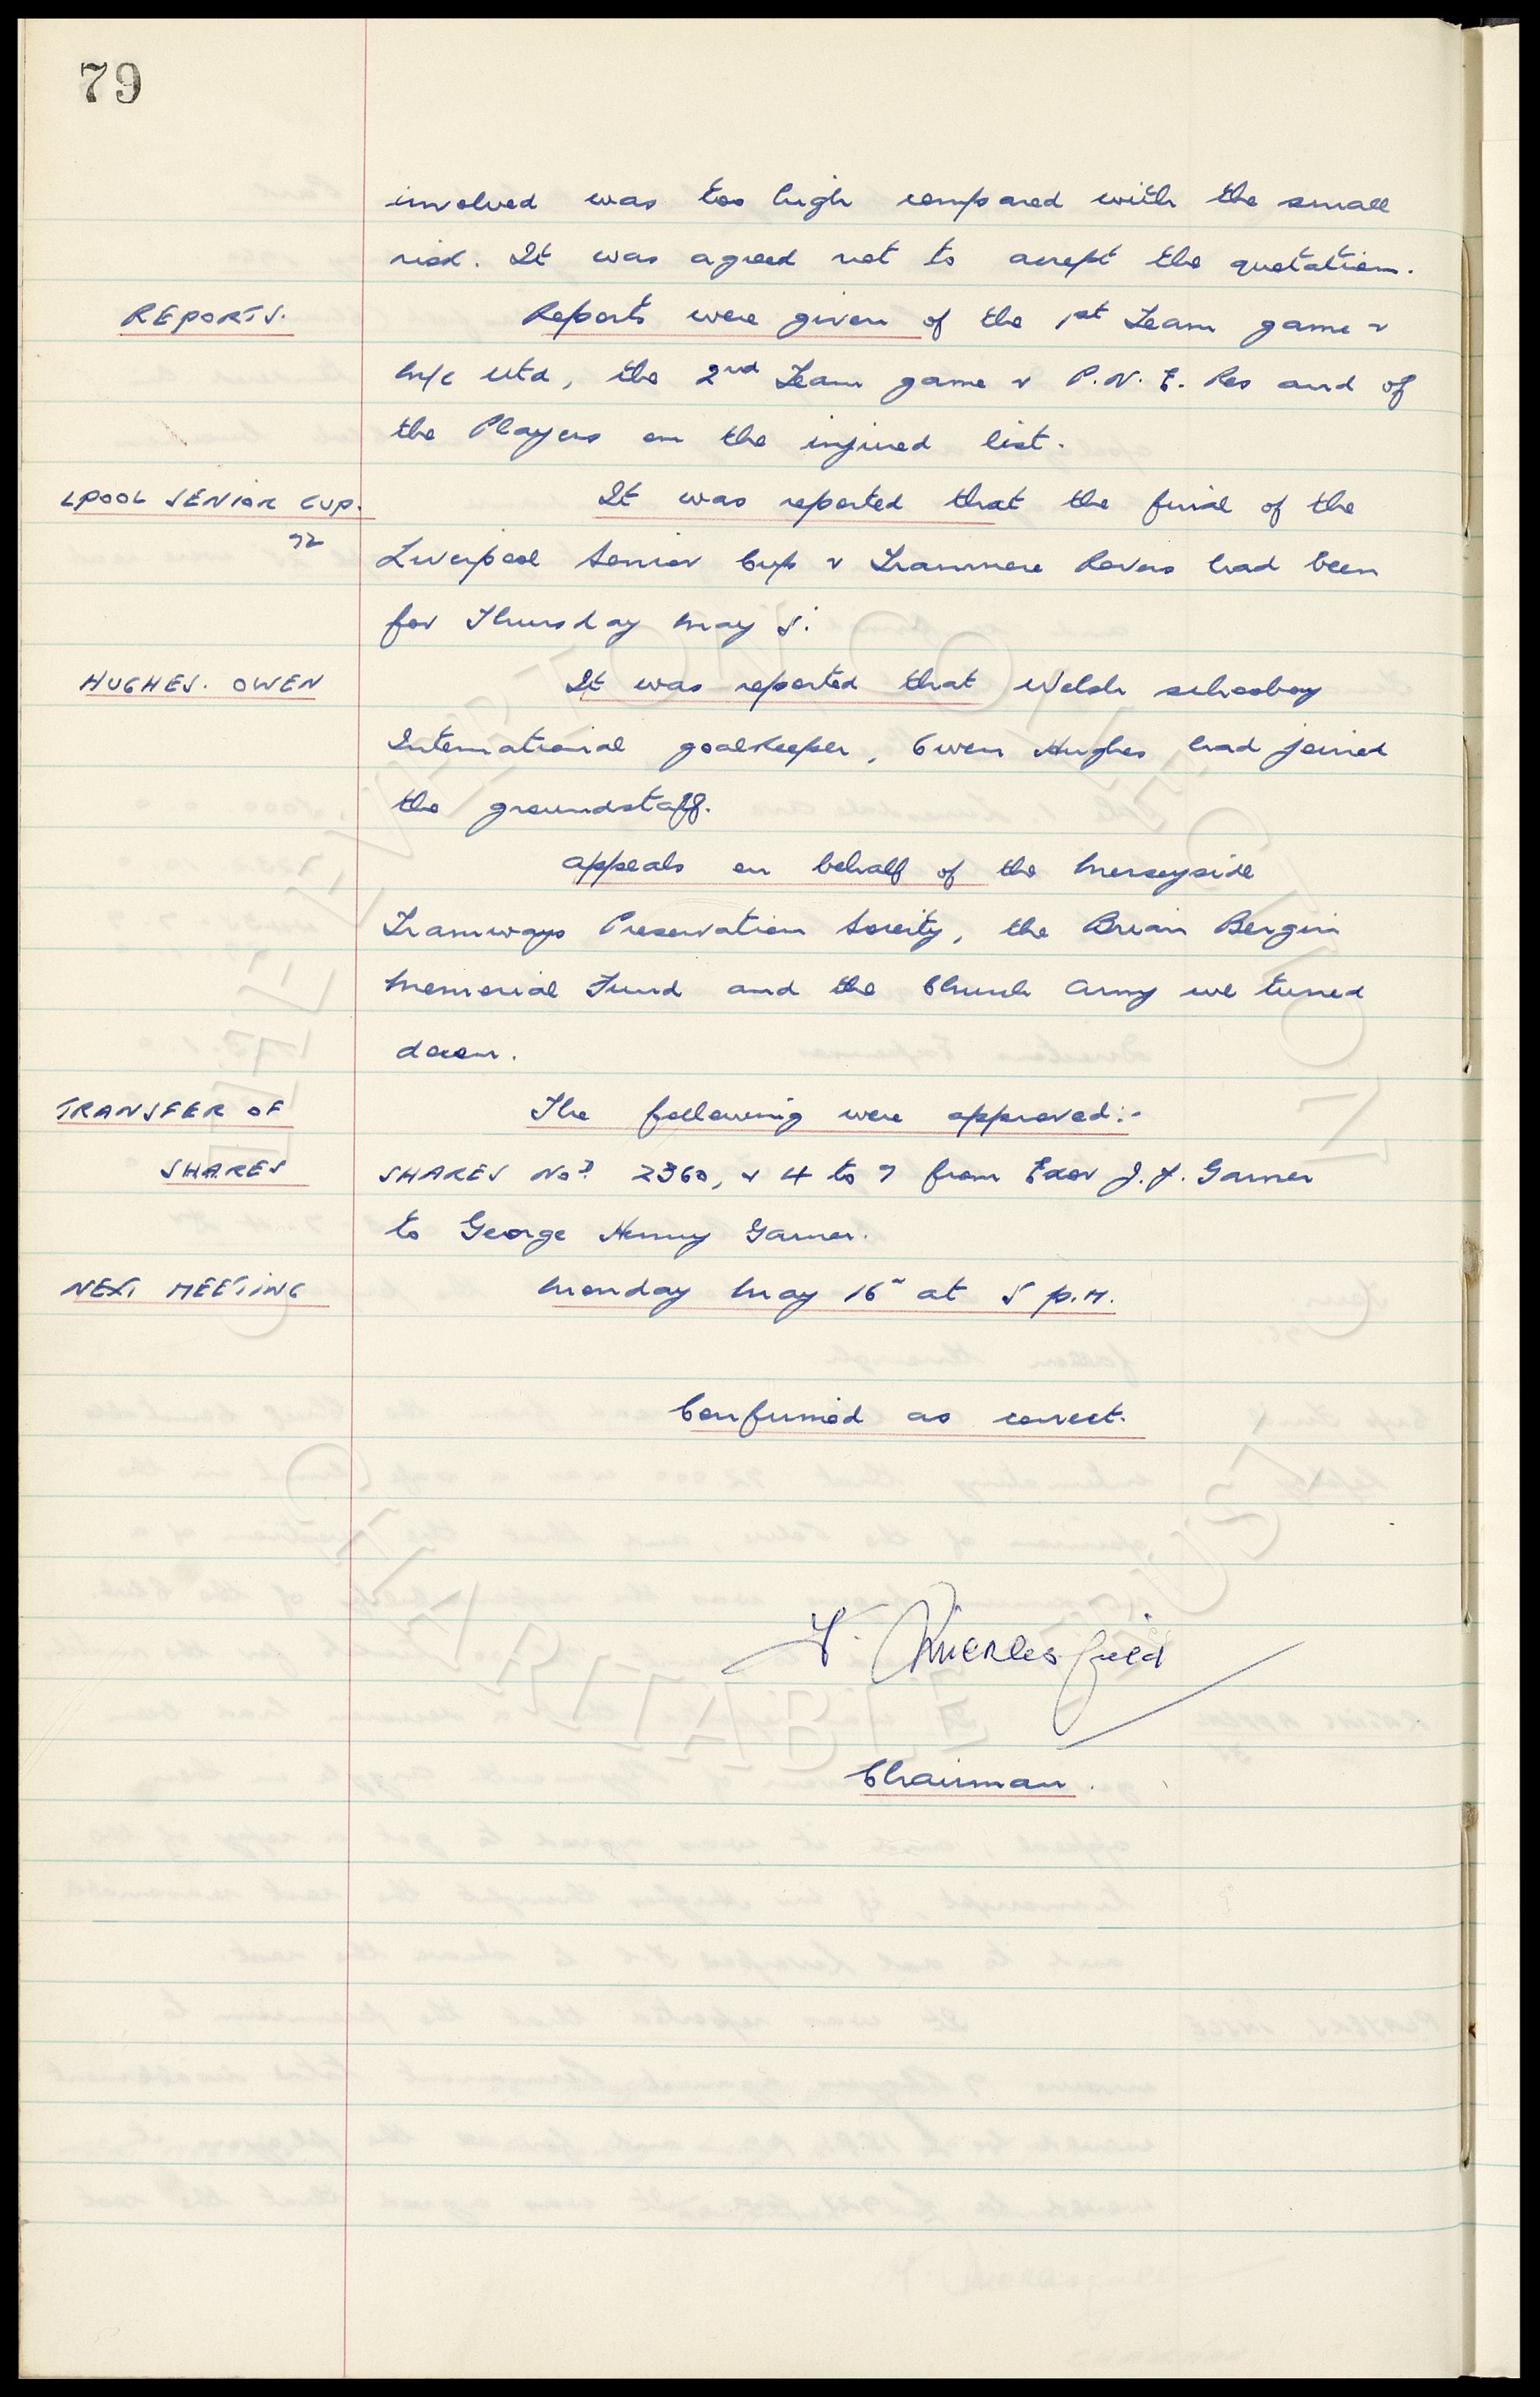 79
involved was too high compared with the small
risk. It was agreed not to accept the quotation.
REPORTS. Reports were given of the 1st Team game v
M/c Utd, the 2nd Team game v P.N.E. Res and of
the Players on the injured list.
LPOOL SENIOR CUP. It was reported that the final of the
72 Liverpool Senior Cup v Tranmere Rovers had been
for Thursday May 5.
HUGHES. OWEN It was reported that Welsh schoolboy
International goalkeeper, Owen Hughes had joined
the groundstaff.
Appeals on behalf of the Merseyside
Tramways Preservation Society, the Brian Bergin
Memorial Fund and the Church Army we turned
down.
TRANSFER OF The following were approved:-
SHARES SHARES Nos 2360, & 4 to 7 from Exor J. J. Garner
to George Henry Garner.
NEXT MEETING Monday May 16 at 5 p.m.
Confirmed as correct.
Chairman.